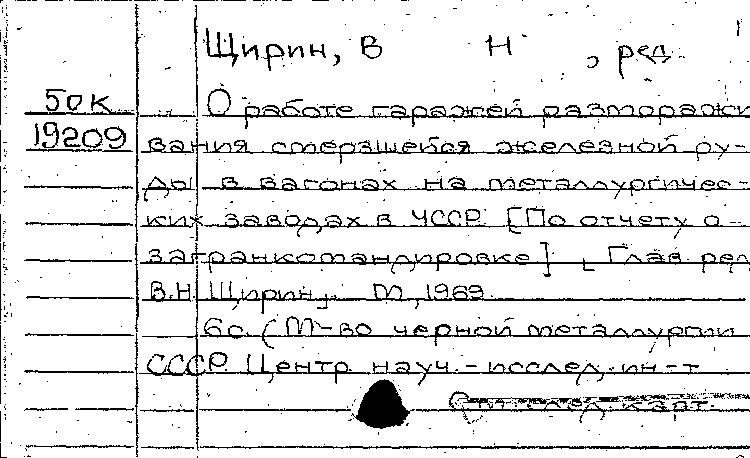 Щирин, В Н , ред.
50к
О работе гаражей разморажи
19209
вания смерзшейся железной ру-
ды в вагонах на металлургичес-
ких заводах в ЧССР. [По отчету о
загранкомандировке]. [Глав. ред.
В.Н. Щирин]. М., 1969.
6с. (М-во черной металлургии
СССР. Центр. науч.-исслед. ин-т
см. след. карт.